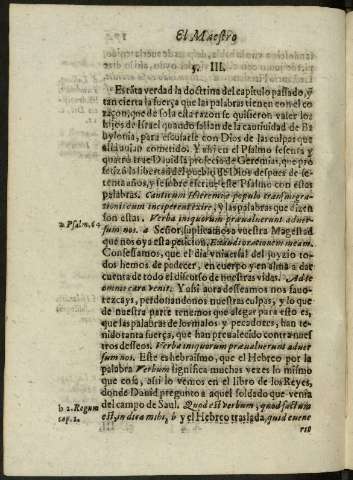 El Maestro
§. III.
Es tāta verdad la doctrina del capitulo passado, y
tan cierta la fuerça que las palabras tienen con el co
raçon, que de sola esta razon se quisieron valer los
hijos de Israel quando salian de la cautiuidad de Ba
bylonia, para escusarse con Dios de las culpas que
alli auian cometido. Y assi en el Psalmo sesenta y
quatro trae Dauid la profecia de Geremias, que pro
fetizò la libertad del pueblo de Dios despues de se-
tenta años, y se nombre escriue este Psalmo con estas
palabras. Canticum Hieremiæ populo transmigra-
tionis cum inciperent exire, y las palabras que dizen
son estas. Verba iniquorum præualuerunt aduer
a Psalm. 64
sum nos. a Señor suplicamos a vuestra Magestad
que nos oyа esta peticion, Exaudi orationem meam.
Confessamos, que el dia vniuersal del juyzio to-
dos hemos de parecer, en cuerpo y en alma a dar
cuenta de todo el discurso de nuestras vidas. Ad te
omnis caro veniet. Y assi aora desseamos nos fauo-
rezcays, perdonandonos nuestras culpas, y lo que
de nuestra parte tenemos que alegar para esto es,
que las palabras de los malos y pecadores, han te-
nido tanta fuerça, que han preualecido contra nues
tros desseos. Verba iniquorum præualuerunt aduer
sum nos. Este es hebraismo, que el Hebreo por la
palabra Verbum significa muchas vezes lo mismo
que cosa, assi lo vemos en el libro de los Reyes,
donde Dauid preguntò a aquel soldado que venia
del campo de Saul. Quod est verbum, quod factum
b 2. Regum
cap. 1.
est, indica mihi, b y el Hebreo traslada, quid euene
rit